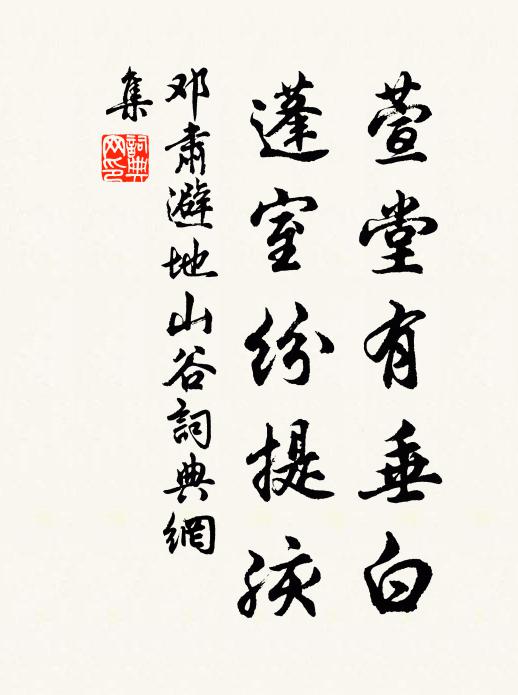 萱堂有垂白
蓬室纷提孩
邓肃避地山谷詞典網
集
詞典网印